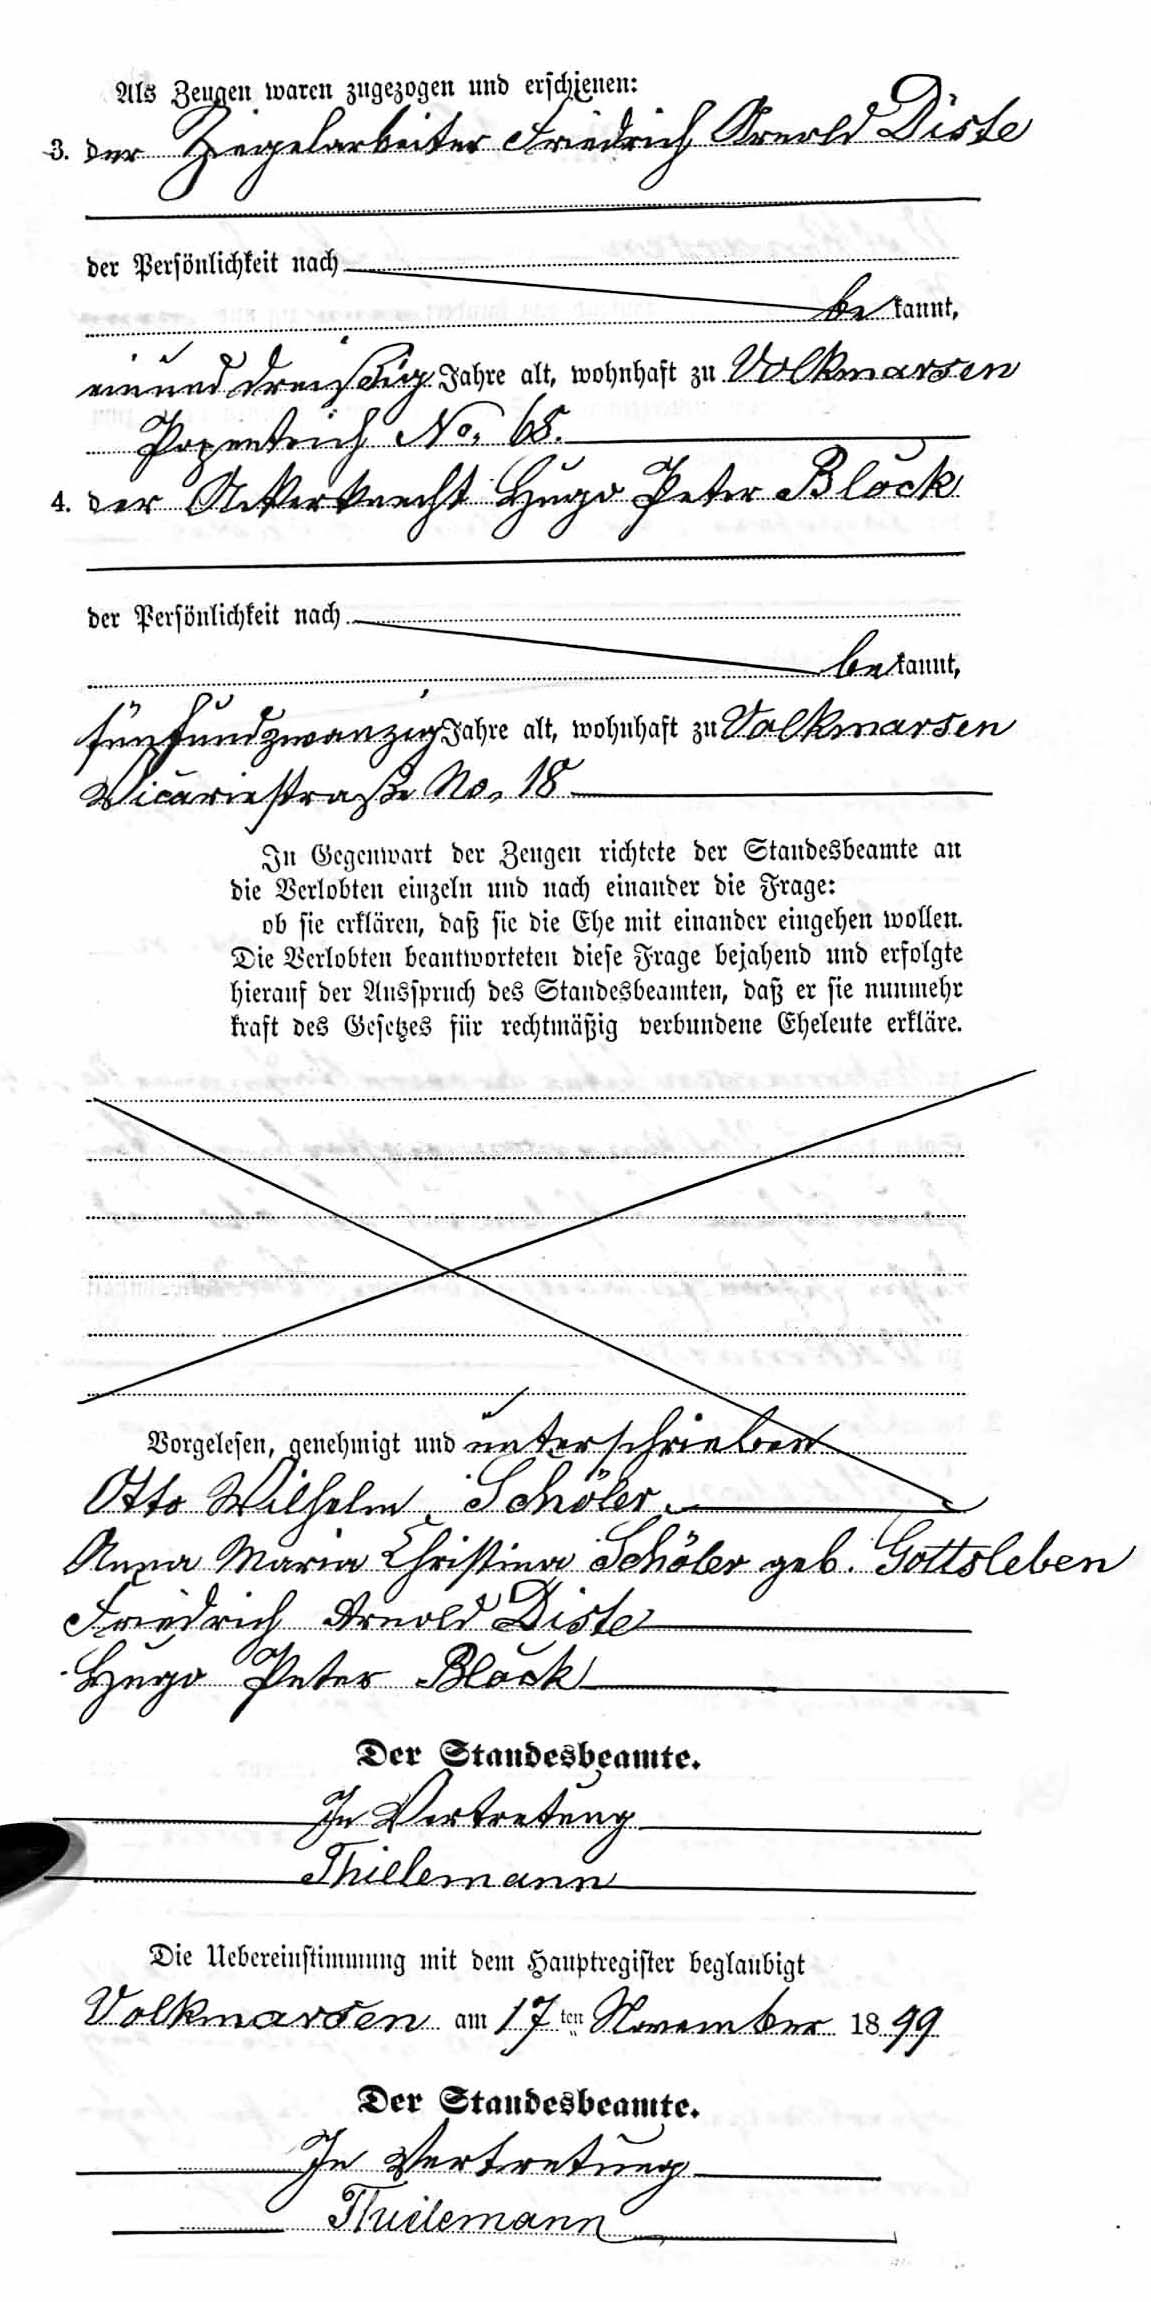 Als Zeugen waren zugezogen und erschienen:
3. der Ziegelarbeiter Friedrich Arnold Diste
der Persönlichkeit nach
be kannt,
einunddreißig Jahre alt, wohnhaft zu Volkmarsen
No. 68.
4. der Ackerknecht Hugo Peter Block
der Persönlichkeit nach
be kannt,
fünfundzwanzig Jahre alt, wohnhaft zu Volkmarsen
Vicariestraße No. 18
In Gegenwart der Zeugen richtete der Standesbeamte an
die Verlobten einzeln und nach einander die Frage:
ob sie erklären, daß sie die Ehe mit einander eingehen wollen.
Die Verlobten beantworteten diese Frage bejahend und erfolgte
hierauf der Ausspruch des Standesbeamten, daß er sie nunmehr
kraft des Gesetzes für rechtmäßig verbundene Eheleute erkläre.
Vorgelesen, genehmigt und unterschrieben
Otto Wilhelm Schöler
Anna Maria Christina Schöler geb. Gottsleben
Friedrich Arnold Diste
Hugo Peter Block
Der Standesbeamte.
In Vertretung
Thielemann
Die Uebereinstimmung mit dem Hauptregister beglaubigt
Volkmarsen am 17 ten November 1899
Der Standesbeamte.
In Vertretung
Thielemann